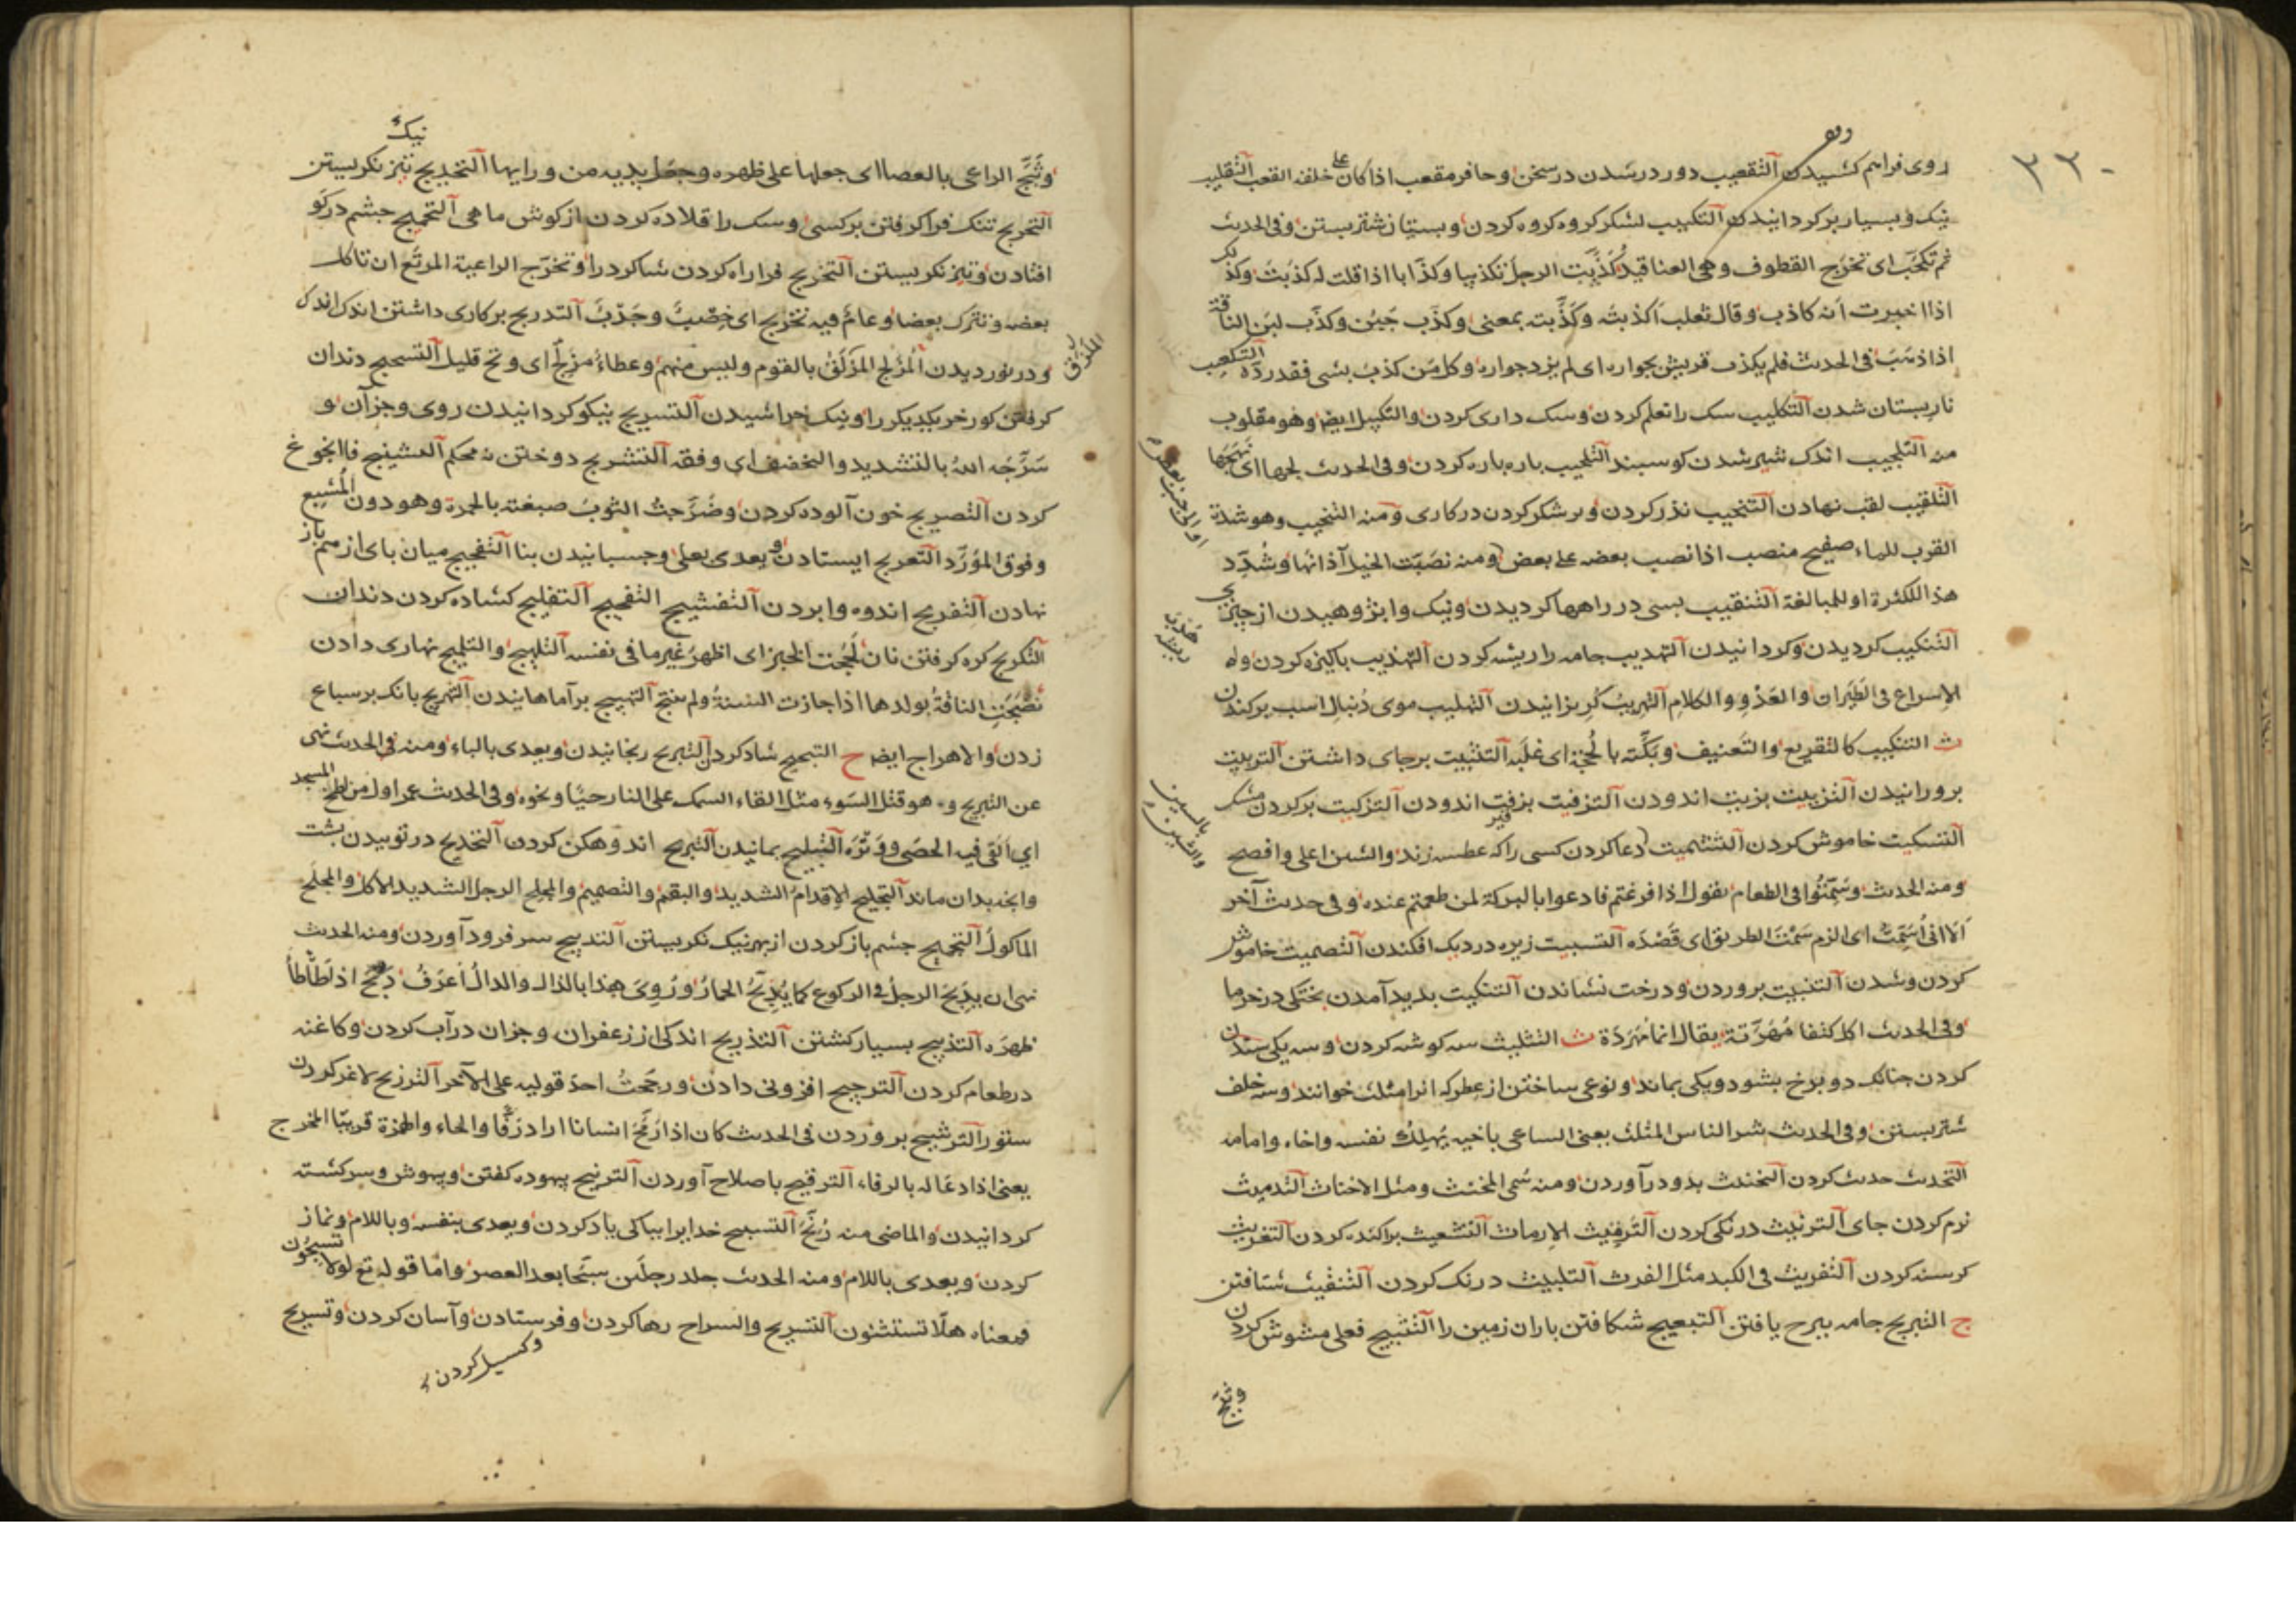 ٣٣٠
روی فراهم کشیدن التقعیب دور درشدن در سخن وحافر مقعب اذا کان علی خلفة القعب التقلیب
نیک وبسیار برکردانیدن التکبیب لشکر کروه کروه کردن وبستان شتر بستن وفی الحدیث
ثم تکعب ای تخرج القطوف وهی العناقید کذبت الرجل تکذیبا وکذابا اذا قلت له کذبت وکذلک
اذا اخبرت انه کاذب وقال ثعلب اکذبته وکذبته بمعنی وکذب جبن وکذب لبن الناقة
اذا ذهب فی الحدیث فلم یکذب قریش بجواره ای لم یرد جواره وکل من کذب بشی فقد رده التکعیب
نارپستان شدن التکلیب سک را تعلم کردن وسک داری کردن والتکبیل ایض وهو مقلوب
منه التلجیب اندک شیر شدن کوسپند التلحیب پاره پاره کردن وفی الحدیث لحبها ای نهجها
التلقیب لقب نهادن التنحیب نذر کردن وبر شکر کردن در کاری ومنه التنحیب وهو شدة
القرب للماء صفیح منصب اذا نصب بعضه علی بعض ومنه نصبت الخیل آذانها وشدد
هذا للکثرة او للمبالغة التنقیب بسی در راهها کردیدن ونیک وا پژوهیدن از چیزی
التنکیب کردیدن وکردانیدن التهدیب جامه را ریشه کردن التهذیب پاکیزه کردن وله
الاسراع فی الطیران والعدو والکلام التهریب کریزانیدن التهلیب موی دنبال اسب برکندن
ت التبکیت کالتقریع والتعنیف وبکته بالحجة ای غلبه التثبیت برجای داشتن التربیت
برورانیدن التزییت بزیت اندودن التزفیت بزفت اندودن التزکیت برکردن مشک
التسکیت خاموش کردن التشمیت دعا کردن کسی را که عطسه زند والشین اعلی وافصح
ومنه الحدیث وسمتوا فی الطعام یقول اذا فرغتم فادعوا بالبرکة لمن طعمتم عنده وفی حدیث آخر
ای الزم سمت الطریق ای قصده التسبیت زیره در دیک افکندن التصمیت خاموش
کردن وشدن التنبیت پروردن ودرخت نشاندن التنکیت پدید آمدن پختکی در خرما
وفی الحدیث اکل کتفا مهرتة یقال انما مهردة ث التثلیث سه کوشه کردن وسه یکی ستدن
کردن چنانک دو برخ بشود ویکی بماند ونوعی ساختن از عطر که انرا مثلث خوانند وسه خلف
شتر بستن وفی الحدیث شر الناس المثلث یعنی الساعی باخیه یهلک نفسه واخاه وامامه
التحدیث حدیث کردن التخنیث بدو درآوردن ومنه سمی المخنث ومثله الاخناث التدمیث
نرم کردن جای التربیث درنکی کردن الترمیث الارماث التشعیث پراکنده کردن التغریث
کرسنه کردن التفریث فی الکبد مثل الفرث التلبیث درنک کردن التنفیث شتافتن
ج التبریج جامه ببرج بافتن التبعیج شکافتن باران زمین را التثبیج فعلی مشوش کردن
وثبج
وثبج الراعی بالعصا ای جعلها علی ظهره وجعل یدیه من ورایها التحدیج تیز نکریستن نیک
التحریج تنک فرا کرفتن برکسی وسک را قلاده کردن از کوش ماهی التحمیج چشم درکو
افتادن وتیز نکریستن التخریج فرا راه کردن شاکرد را وتخرج الراعیة المرتع ان تاکل
بعضه وتترک بعضا وعام فیه تخریج ای خصب وجدب التدریج برکاری داشتن اندک اندک
ودر نوردیدن المزلج الملزق بالقوم ولیس منهم وعطاء مزلج ای وتح قلیل التسحیج دندان
کرفتن کورخر یکدیکر را ونیک خراشیدن التسریج نیکو کردانیدن روی وجز آن و
سرجه الله بالتشدید والتخفیف ای وفقه التشریج دوختن نه محکم التشنیج فاانجوغ
کردن التضریج خون آلوده کردن وضرجت الثوب صبغته بالحمرة وهو دون المشبع
وفوق المورد التعریج ایستادن ویعدی بعلی وچسبانیدن بنا التفجیج میان پای از هم باز
نهادن التفریج اندوه وا بردن التفشیج التفجیج التفلیج کشاده کردن دندان
التکریج کره کرفتن نان لهوجت الخبر ای اظهر غیر ما فی نفسه التلهیج والتلمیج نهاری دادن
نضجت الناقة بولدها اذا جازت السنة ولم تنتج التهبیج برآماهانیدن التهریج بانک برسباع
زدن والاهراج ایضا ح التبجیح شاد کردن التبریح رنجانیدن ویعدی بالباء ومنه فی الحدیث نهی
عن التبریح وهو قتل السوء مثل القاء السمک علی النار حیا ونحوه وفی الحدیث عمر اول من بطح المسجد
ای القی فیه الحصی ووثره التبلیح بمانیدن التتریح اندوهکن کردن التجدیح در توبیدن پشت
وانچ بدان ماند التجلیح الاقدام الشدید والتصمیم والمجلح الرجل الشدید الاکل والمجلح
الماکول التجمیح چشم باز کردن از بهر نیک نکریستن التدبیح سر فرود آوردن ومنه الحدیث
نهی ان یدبح الرجل فی الرکوع کما یدبح الحمار وروی هذا بالذال والدال اعرف دبح اذا طاطا
ظهره التذبیح بسیار کشتن التذریح اندکی از زعفران وجزان در آب کردن
در طعام کردن الترجیح افزونی دادن ورجحت احد قولیه علی الآخر الترزیح لاغر کردن
ستور الترشیح بروردن فی الحدیث کان اذا رفح انسانا اراد رفا والحاء والهمزة قریبا المخرج
یعنی اذا دعا له بالرفاء الترقیح باصلاح آوردن الترنیح بیهوده کفتن وبیهوش وسرکشته
کردانیدن والماضی منه رنح التسبیح خدایرا بپاکی یاد کردن ویعدی بنفسه وباللام ونماز
کردن ویعدی باللام ومنه الحدیث جلد رجلین سبحا بعد العصر واما قوله تع لولا تسبحون
فمعناه هلا تستثنون التسریح والسراح رها کردن وفرستادن وآسان کردن وتسریح
وکسیل کردن